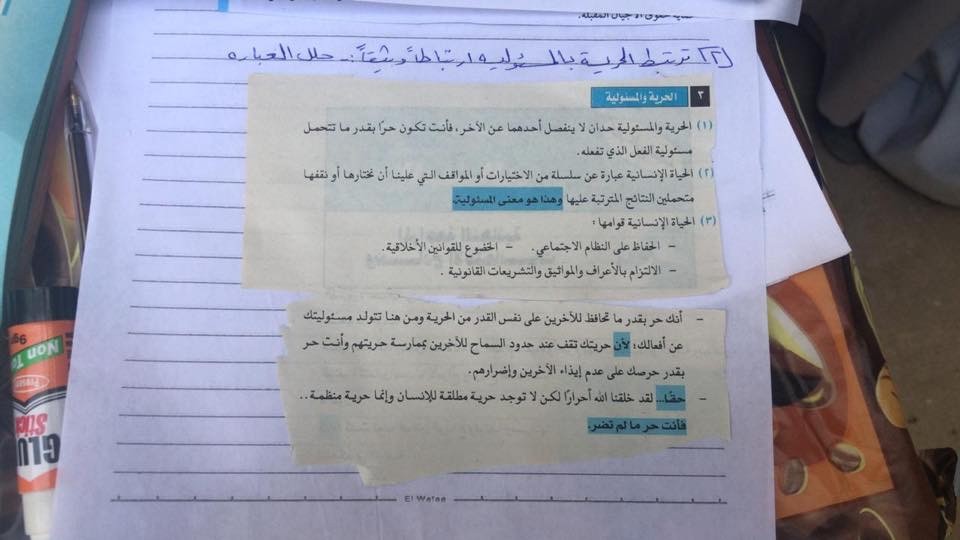 حماية حقوق الأجيال المقبلة.
(٢) ترتبط الحرية بالمسئولية ارتباطاً وثيقاً :- حلل العبارة
٣ الحرية والمسئولية
(١) الحرية والمسئولية حدان لا ينفصل أحدهما عن الآخر، فأنت تكون حرًا بقدر ما تتحمل
مسئولية الفعل الذي تفعله.
(٢) الحياة الإنسانية عبارة عن سلسلة من الاختيارات أو المواقف التي علينا أن نختارها أو نقفها
متحملين النتائج المترتبة عليها وهذا هو معنى المسئولية.
(٣) الحياة الإنسانية قوامها :
– الحفاظ على النظام الاجتماعي. – الخضوع للقوانين الأخلاقية.
– الالتزام بالأعراف والمواثيق والتشريعات القانونية .
– أنك حر بقدر ما تحافظ للآخرين على نفس القدر من الحرية ومن هنا تتولد مسئوليتك
عن أفعالك؛ لأن حريتك تقف عند حدود السماح للآخرين بممارسة حريتهم وأنت حر
بقدر حرصك على عدم إيذاء الآخرين وإضرارهم.
– حقًا... لقد خلقنا الله أحرارًا لكن لا توجد حرية مطلقة للإنسان وإنما حرية منظمة ..
فأنت حر ما لم تضر.
El Wafaa
9g
Non To
GLU
Stick